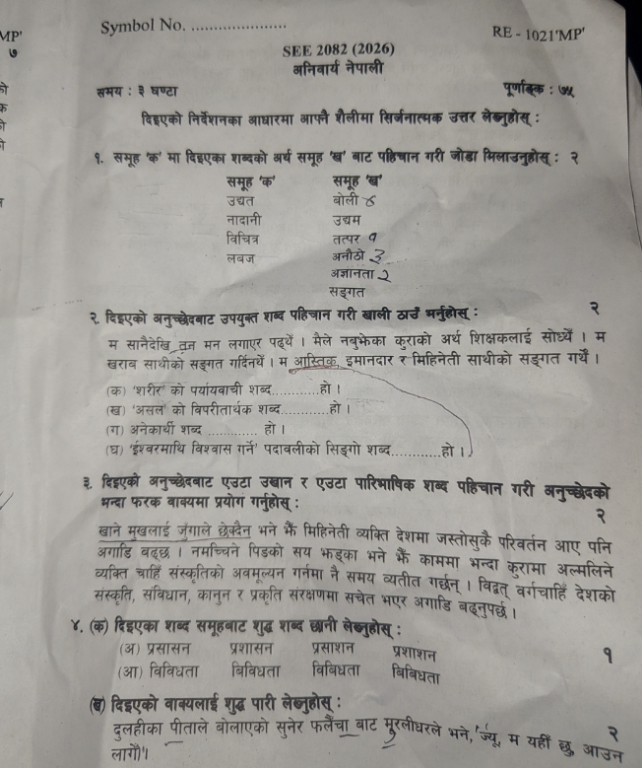 MP'
७
Symbol No. ......................
RE - 1021'MP'
SEE 2082 (2026)
अनिवार्य नेपाली
समय : ३ घण्टा
पूर्णाङ्क : ७५
दिइएको निर्देशनका आधारमा आफ्नै शैलीमा सिर्जनात्मक उत्तर लेख्नुहोस् :
१. समूह 'क' मा दिइएका शब्दको अर्थ समूह 'ख' बाट पहिचान गरी जोडा मिलाउनुहोस् : २
समूह 'क' समूह 'ख'
उद्यत बोली ४
नादानी उद्यम
विचित्र तत्पर १
लवज अनौठो ३
अज्ञानता २
सङ्गत
२. दिइएको अनुच्छेदबाट उपयुक्त शब्द पहिचान गरी खाली ठाउँ भर्नुहोस् : २
म सानैदेखि तन मन लगाएर पढ्थें । मैले नबुझेका कुराको अर्थ शिक्षकलाई सोध्थें । म
खराब साथीको सङ्गत गर्दिनथें । म आस्तिक, इमानदार र मिहिनेती साथीको सङ्गत गर्थें ।
(क) 'शरीर' को पर्यायवाची शब्द............हो ।
(ख) 'असल' को विपरीतार्थक शब्द............हो ।
(ग) अनेकार्थी शब्द ............ हो ।
(घ) 'ईश्वरमाथि विश्वास गर्ने' पदावलीको सिङ्गो शब्द............हो ।
३. दिइएको अनुच्छेदबाट एउटा उखान र एउटा पारिभाषिक शब्द पहिचान गरी अनुच्छेदको
भन्दा फरक वाक्यमा प्रयोग गर्नुहोस् : २
खाने मुखलाई जुँगाले छेक्दैन भने झैँ मिहिनेती व्यक्ति देशमा जस्तोसुकै परिवर्तन आए पनि
अगाडि बढ्छ । नमच्चिने पिङको सय झड्का भने झैँ काममा भन्दा कुरामा अल्मलिने
व्यक्ति चाहिँ संस्कृतिको अवमूल्यन गर्नमा नै समय व्यतीत गर्छन् । विद्वत् वर्गचाहिँ देशको
संस्कृति, संविधान, कानुन र प्रकृति संरक्षणमा सचेत भएर अगाडि बढ्नुपर्छ ।
४. (क) दिइएका शब्द समूहबाट शुद्ध शब्द छानी लेख्नुहोस् : १
(अ) प्रसासन प्रशासन प्रसाशन प्रशाशन
(आ) विविधता बिबिधता विबिधता बिविधता
(ख) दिइएको वाक्यलाई शुद्ध पारी लेख्नुहोस् : २
दुलहीका पीताले बोलाएको सुनेर फलैंचा बाट मूरलीधरले भने, 'ज्यू, म यहीँ छु, आउन
लागौँ'।